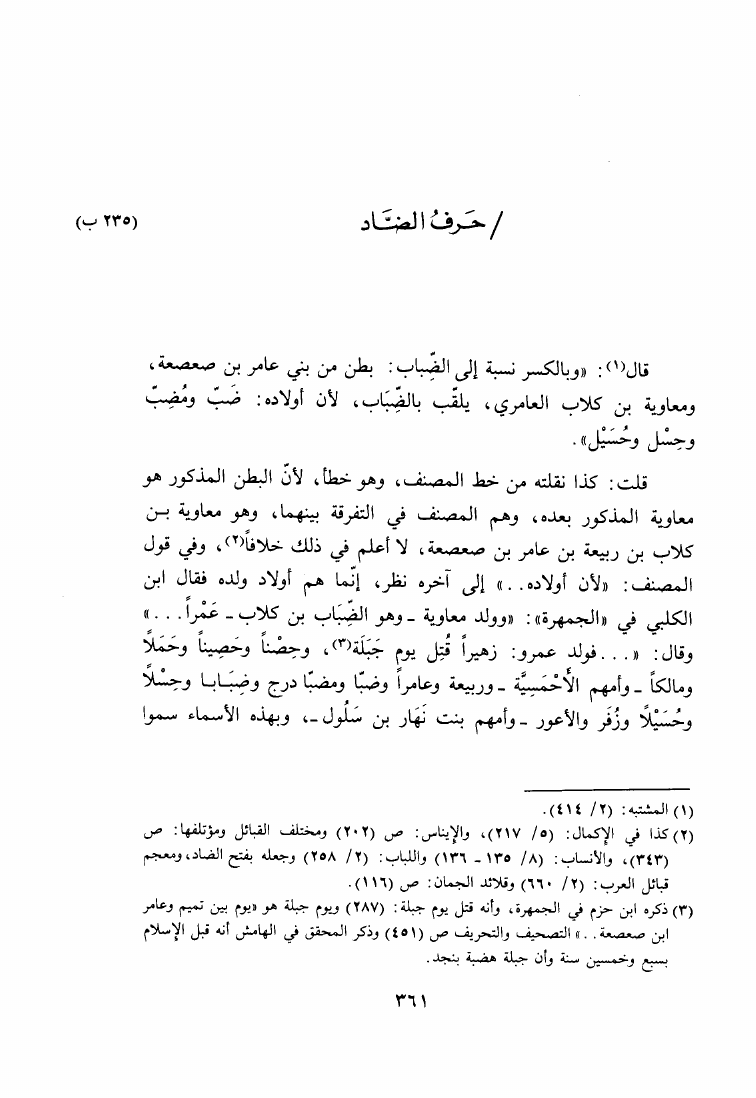 / حَرفُ الضَّاد (٢٣٥ ب)
قال(١): «وبالكسر نسبة إلى الضِّباب: بطن من بني عامر بن صعصعة،
ومعاوية بن كلاب العامري، يلقب بالضِّبَاب، لأن أولاده: ضَبّ ومُضِبّ
وحِسْل وحُسَيْل».
قلت: كذا نقلته من خط المصنف، وهو خطأ، لأنّ البطن المذكور هو
معاوية المذكور بعده، وهم المصنف في التفرقة بينهما، وهو معاوية بن
كلاب بن ربيعة بن عامر بن صعصعة، لا أعلم في ذلك خلافاً(٢)، وفي قول
المصنف: «لأن أولاده..» إلى آخره نظر، إنّما هم أولاد ولده فقال ابن
الكلبي في «الجمهرة»: «وولد معاوية - وهو الضِّبَاب بن كلاب - عَمْراً...»
وقال: «... فولد عمرو: زهيراً قُتِل يوم جَبَلة(٣)، وحِصْناً وحَصِيناً وحَمَلاً
ومالكاً - وأمهم الأَحْمَسِيَّة - وربيعة وعامراً وضبّا ومضبّا درج وضِبَـابـا وحِسْلاً
وحُسَيْلاً وزُفَر والأعور - وأمهم بنت نَهَار بن سَلُول -، وبهذه الأسماء سموا
(١) المشتبه: (٢/ ٤١٤).
(٢) كذا في الإكمال: (٥/ ٢١٧)، والإيناس: ص (٢٠٢) ومختلف القبائل ومؤتلفها: ص
(٣٤٣)، والأنساب: (٨/ ١٣٥ - ١٣٦) واللباب: (٢/ ٢٥٨) وجعله بفتح الضاد، ومعجم
قبائل العرب: (٢/ ٦٦٠) وقلائد الجمان: ص (١١٦).
(٣) ذكره ابن حزم في الجمهرة، وأنه قتل يوم جبلة: (٢٨٧) ويوم جبلة هو «يوم بين تميم وعامر
ابن صعصعة..» التصحيف والتحريف ص (٤٥١) وذكر المحقق في الهامش أنه قبل الإسلام
بسبع وخمسين سنة وأن جبلة هضبة بنجد.
٣٦١